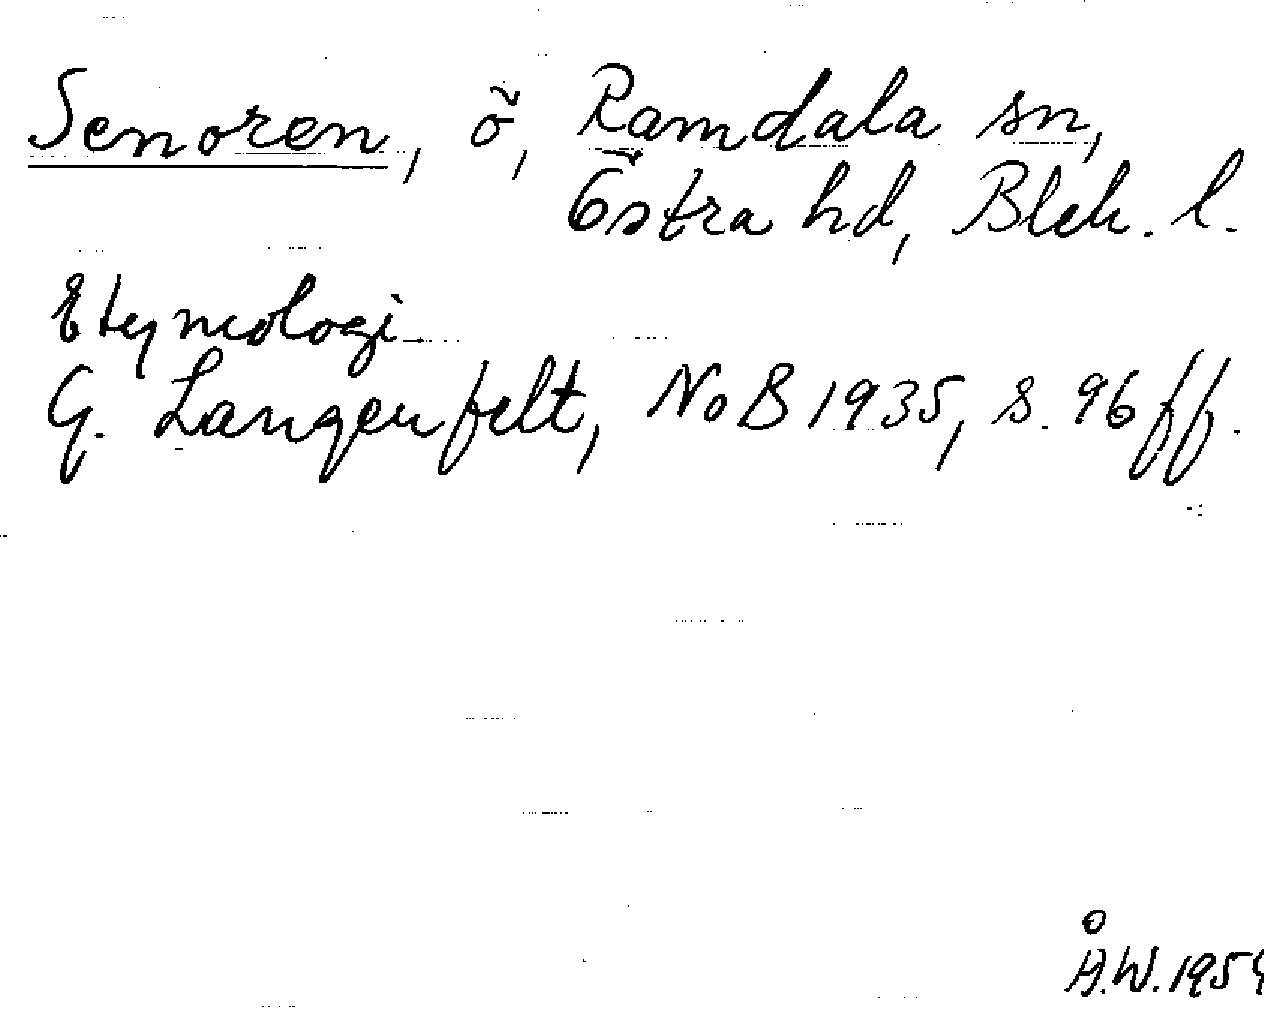 Senoren, ö, Ramdala sn,
Östra hd, Blek. l.
Etymologi
G. Langenfelt, NoB 1935, s. 96 ff.
Å.W. 195